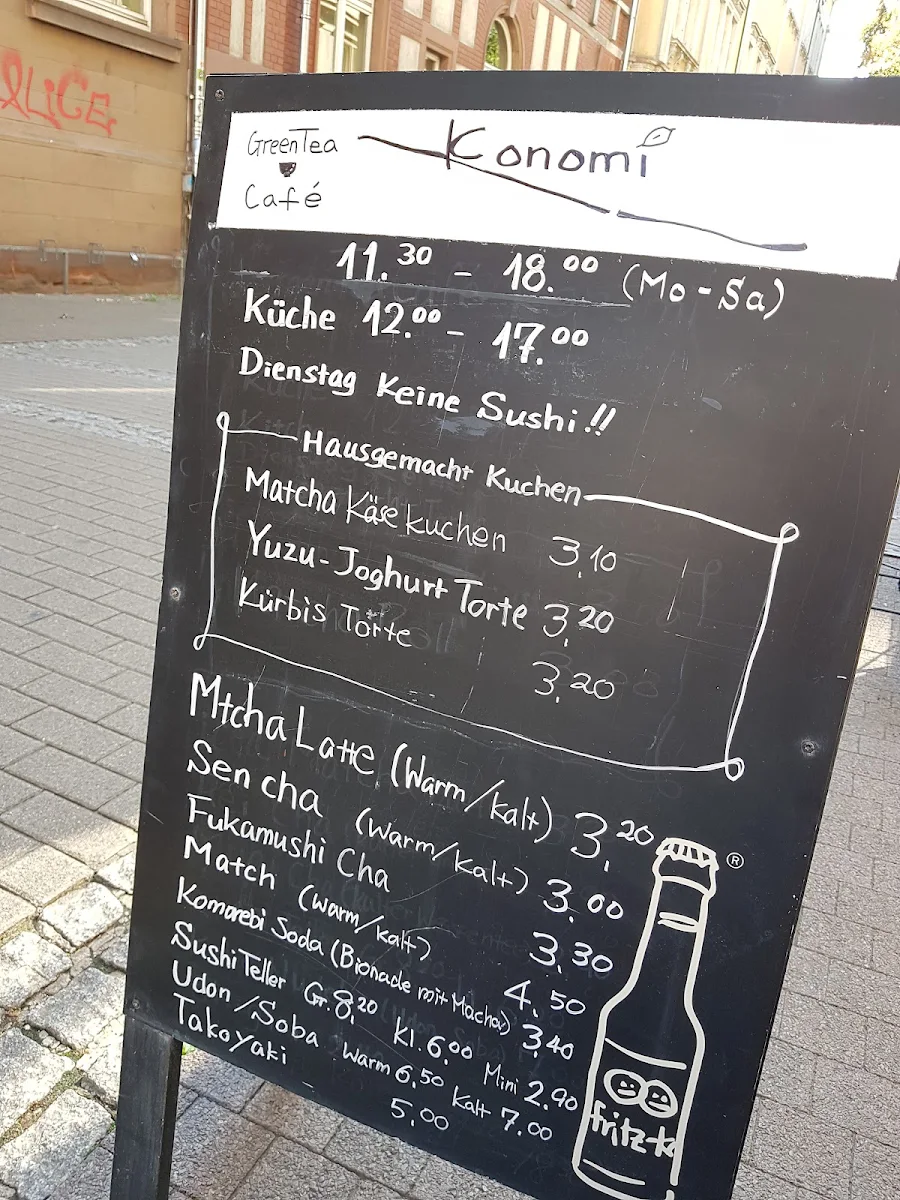 ALiCE
GreenTea
Café
Konomi
11.30 - 18.00 (Mo-Sa)
Küche 12.00 - 17.00
Dienstag Keine Sushi!!
Hausgemacht Kuchen
Matcha Käsekuchen 3,10
Yuzu-Joghurt Torte 3,20
Kürbis Torte 3,20
Mtcha Latte (Warm/kalt) 3,20
Sencha (Warm/Kalt) 3.00
Fukamushi Cha 3,30
Match (Warm/kalt) 4,50
Komorebi Soda (Bionade mit Macha) 3,40
Sushi Teller Gr. 8,20 Kl. 6,00 Mini 2.90
Udon/Soba Warm 6,50 Kalt 7.00
Takoyaki 5,00
®
fritz-k